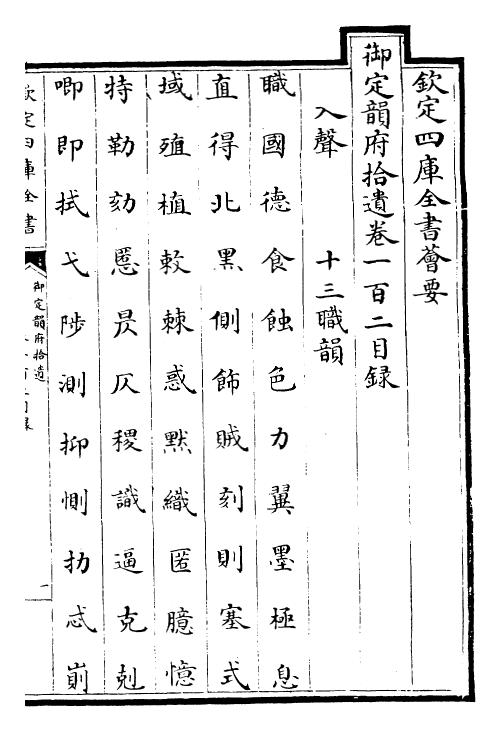 欽定四庫全書薈要
御定韻府拾遺卷一百二目録
入聲　十三職韻
職國德食蝕色力翼墨極息
直得北黒側飾賊刻則塞式
域殖植敕棘惑黙織匿臆憶
特勒劾慝昃仄稷識逼克剋
唧即拭弋陟測抑惻扐忒崱
欽定四庫全書
御定韻府拾遺
一